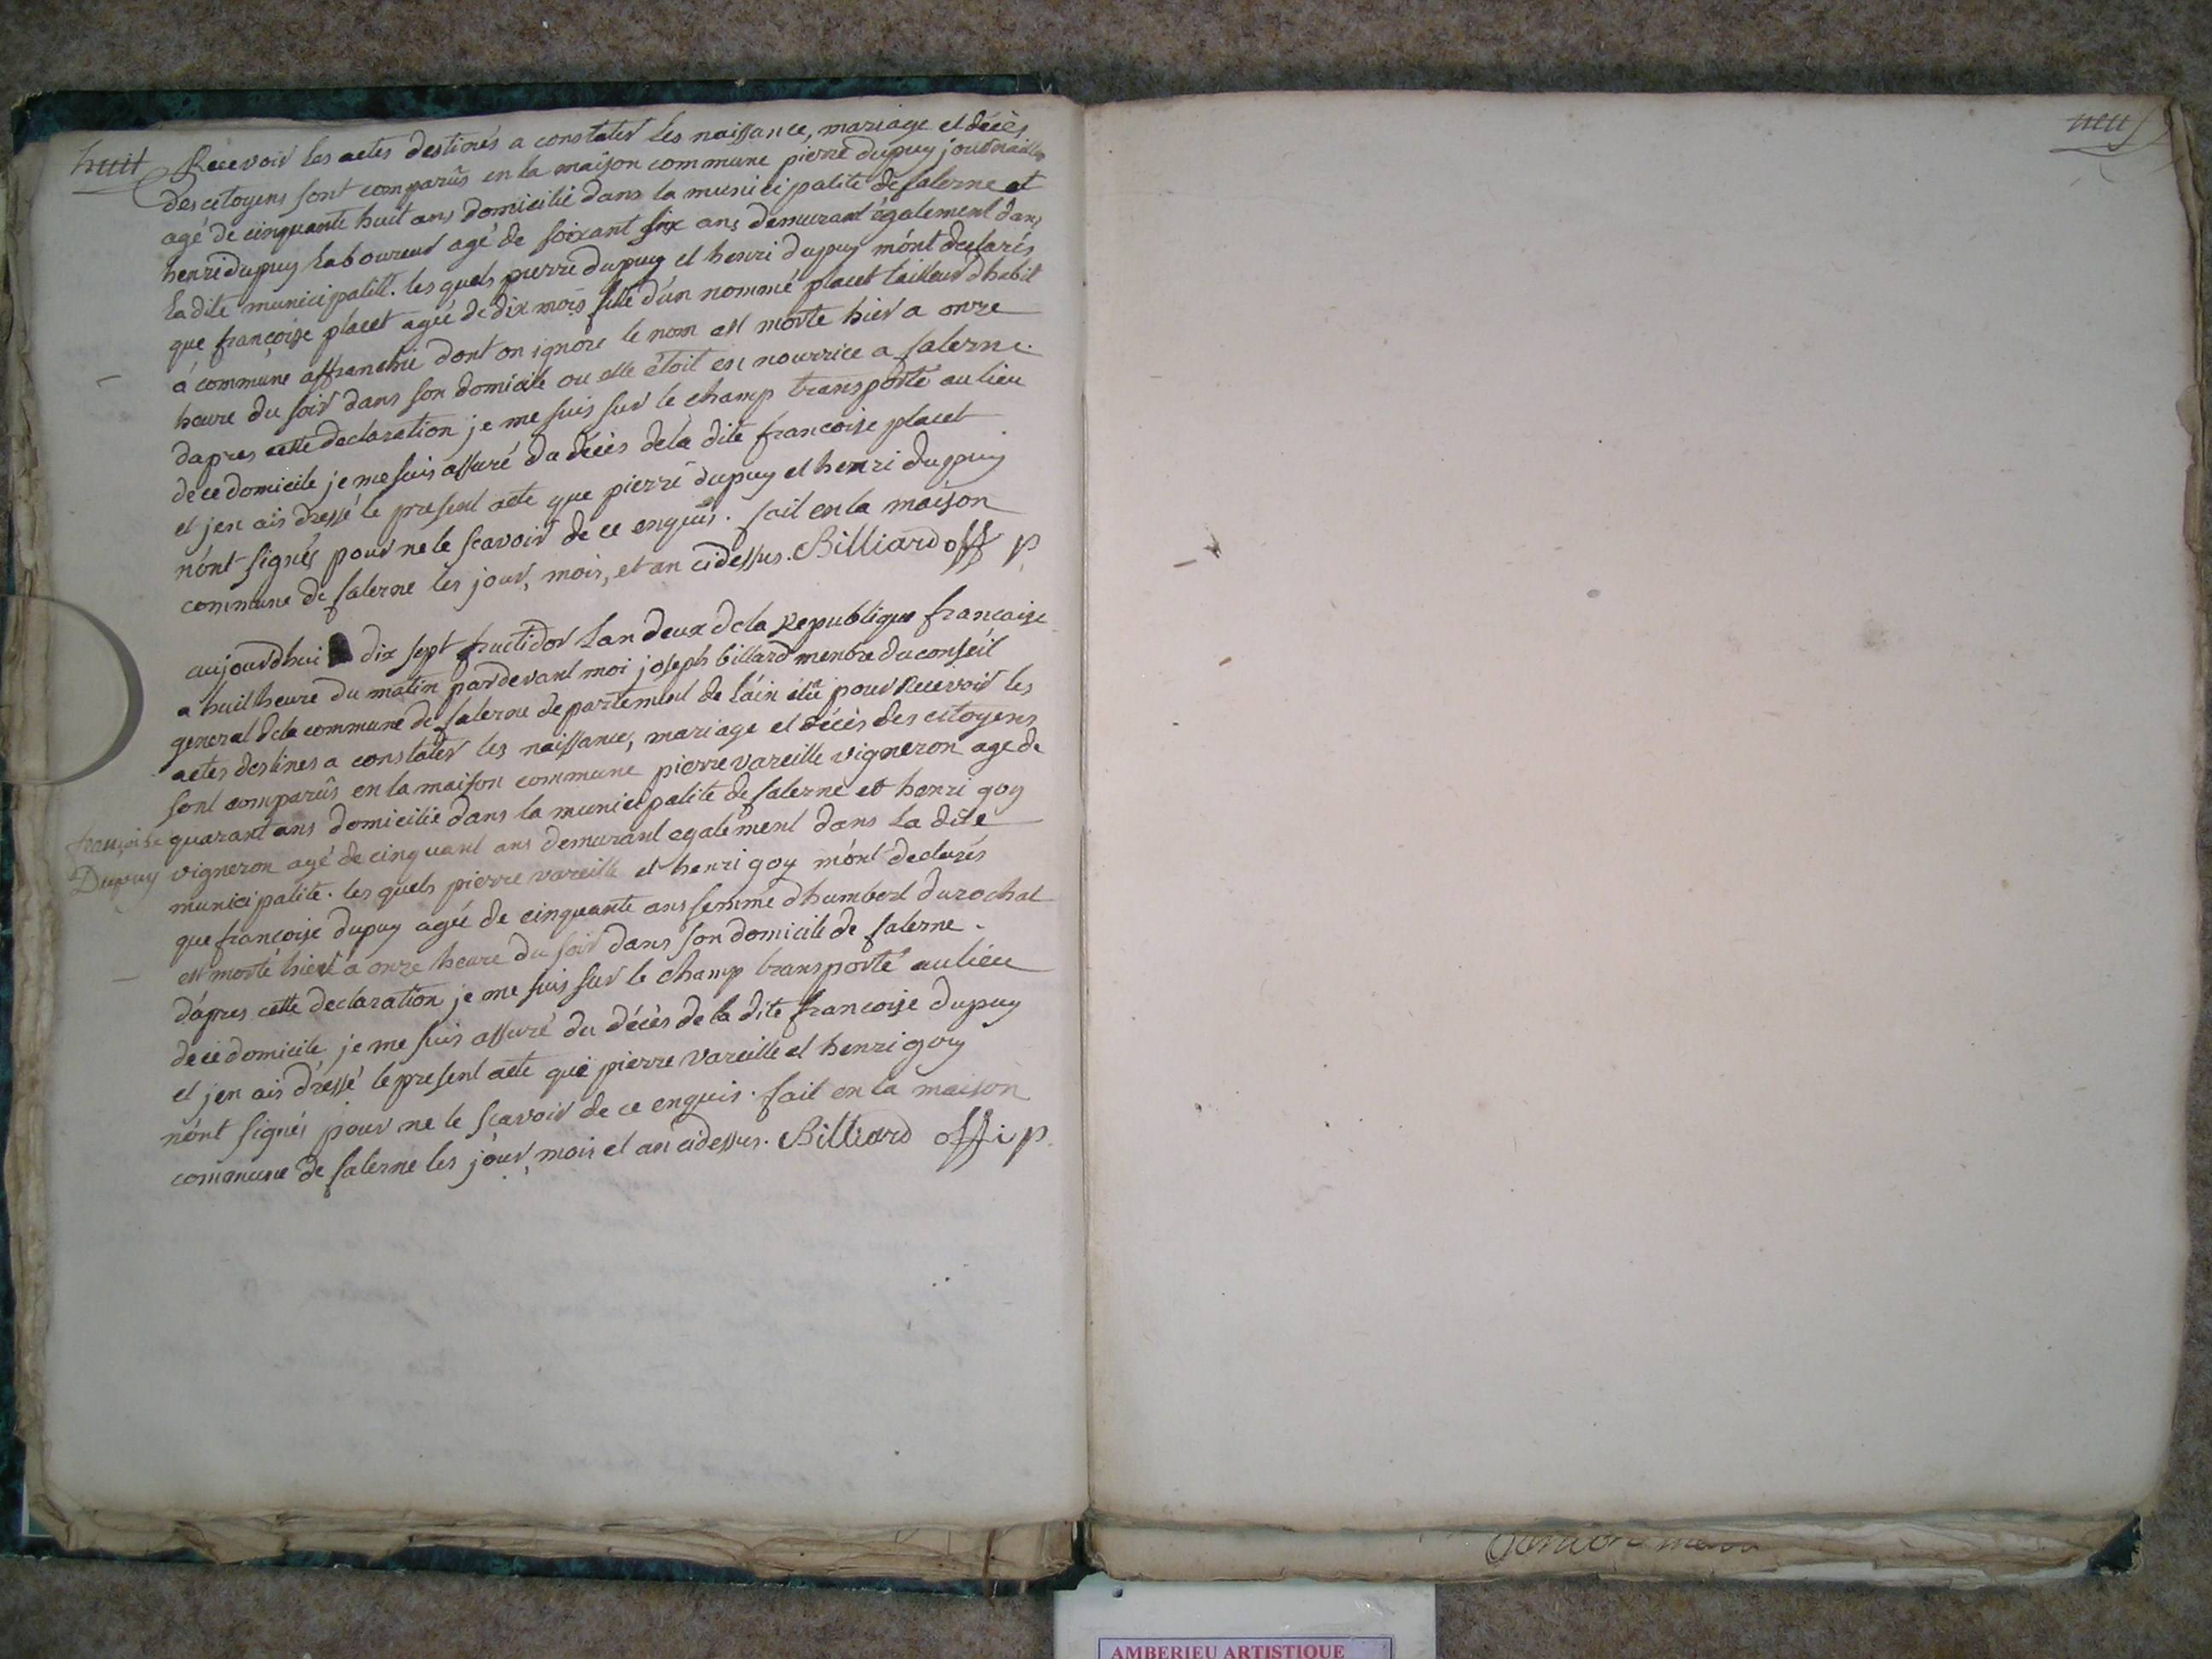 huit
Recevoir les actes destinés a constater les naissance, mariage et décès
des citoyens sont comparûs en la maison commune pierre dupuy journaillier
agé de cinquante huit ans domicilié dans la municipalité de salerne et
henri dupuy laboureur agé de soixant six ans demurant également dans
la dite municipalité. les quels pierre dupuy et henri dupuy mónt declarés
que françoise placet ageé de dix mois fille d'un nommé placet tailleur dhabit
a commune affranchie dont on ignore le nom est morte hier a onze
heure du soir dans son domicile ou elle étoit en nourrice a salerne.
dapres cette declaration je me suis sur le champ transporté au lieu
de ce domicile je me suis assuré du décès de la dite francoise placet
et jen ais dressé le present acte que pierre dupuy et henri dupuy
nónt signés pour ne le scavoir de ce enquis. fait en la maison
commune de salerne les jour, mois, et an cidessus. Billiard off p
aujourdhui dix sept fructidor Lan deux de la Republique francaise
a huit heure du matin pardevant moi joseph billard menbre du conseil
general de la commune de salerne departement de láin élu pour Recevoir les
actes destines a constater les naissance, mariage et décès des citoyens
sont comparûs en la maison commune pierre vareille vigneron age de
quarant ans domicilié dans la municipalite de salerne et henri goy
françoise
Dupuy
vigneron agé de cinquant ans demurant egalement dans la dite
municipalité. les quels pierre vareille et henri goy mónt declarés
que francoise dupuy ageé de cinquante ans femme dhumbert durochat
est morte hier a onze heure du soir dans son domicile de salerne.
dápres cette declaration je me suis sur le champ transporté au lieu
de ce domicile je me suis assuré du décès de la dite francoise dupuy
et jen ais dressé le present acte que pierre vareille et henri goy
nónt signés pour ne le scavoir de ce enquis. fait en la maison
commune de salerne les jour, mois et an cidessus. Billiard offi p
neuf
AMBERIEU ARTISTIQUE